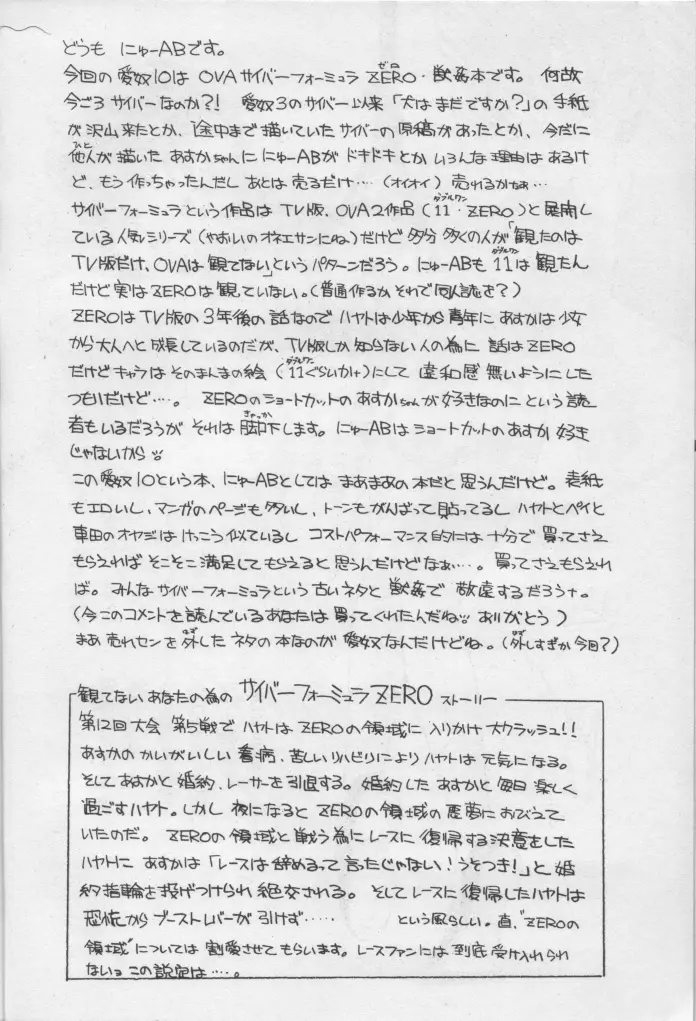 どうも にゅーABです。
今回の愛奴10は OVAサイバーフォーミュラ ZERO・獣姦本です。 何故
今ごろ サイバーなのか?! 愛奴3のサイバー以来「犬はまだですか?」の手紙
が沢山来たとか、途中まで描いていたサイバーの原稿があったとか、今だに
他人が描いた あすかちゃんに にゅーABが ドキドキとか いろんな理由はあるけ
ど、もう作っちゃったんだし あとは売るだけ…(オイオイ) 売れるかなぁ…
サイバーフォーミュラという作品は TV版、OVA2作品(11・ZERO)と展開し
ている人気シリーズ(やおいのオネエサンにね)だけど 多分 多くの人が「観たのは
TV版だけ、OVAは観てない」というパターンだろう。にゅーABも 11は観たん
だけど実はZEROは観ていない。(普通作るか それで同人誌を?)
ZEROはTV版の3年後の話なので ハヤトは少年から青年に あすかは少女
から大人へと成長しているのだが、TV版しか知らない人の為に 話はZERO
だけどキャラはそのまんまの絵(11ぐらいか)にして 違和感無いようにした
つもりだけど…。 ZEROのショートカットのあすかちゃんが好きなのに という読
者もいるだろうが それは脚下します。にゅーABはショートカットのあすか 好き
じゃないから
この愛奴10という本、にゅーABとしては まあまあの本だと思うんだけど。表紙
もエロいし、マンガのページも多いし、トーンもがんばって貼ってるし ハヤトとペイと
車田のオヤジは けっこう似ているし コストパフォーマンス的には十分で 買ってさえ
もらえれば そこそこ満足してもらえると思うんだけどなぁ…。買ってさえもらえれ
ば。みんな サイバーフォーミュラという古いネタと 獣姦で 敬遠するだろナ。
(今このコメントを読んでいるあなたは 買ってくれたんだね ありがとう)
まあ 売れセンを外した ネタの本なのが 愛奴なんだけどね。(外しすぎか 今回?)
観てない あなたの為の サイバーフォーミュラ ZERO ストーリー
第12回大会 第5戦で ハヤトは ZEROの領域に 入りかけ 大クラッシュ!!
あすかの かいがいしい 看病、苦しいリハビリにより ハヤトは 元気になる。
そして あすかと 婚約、レーサーを引退する。婚約した あすかと 毎日 楽しく
過ごすハヤト。しかし 夜になると ZEROの領域の悪夢に おびえて
いたのだ。 ZEROの領域と戦う為にレースに復帰する決意をした
ハヤトに あすかは「レースは辞めるって言ったじゃない!うそつき!」と 婚
約指輪を投げつけられ 絶交される。そしてレースに復帰したハヤトは
恐怖から ブーストレバーが 引けず…… という風らしい。直、"ZEROの
領域"については 割愛させてもらいます。レースファンには 到底 受け入れられ
ない この設定は…。